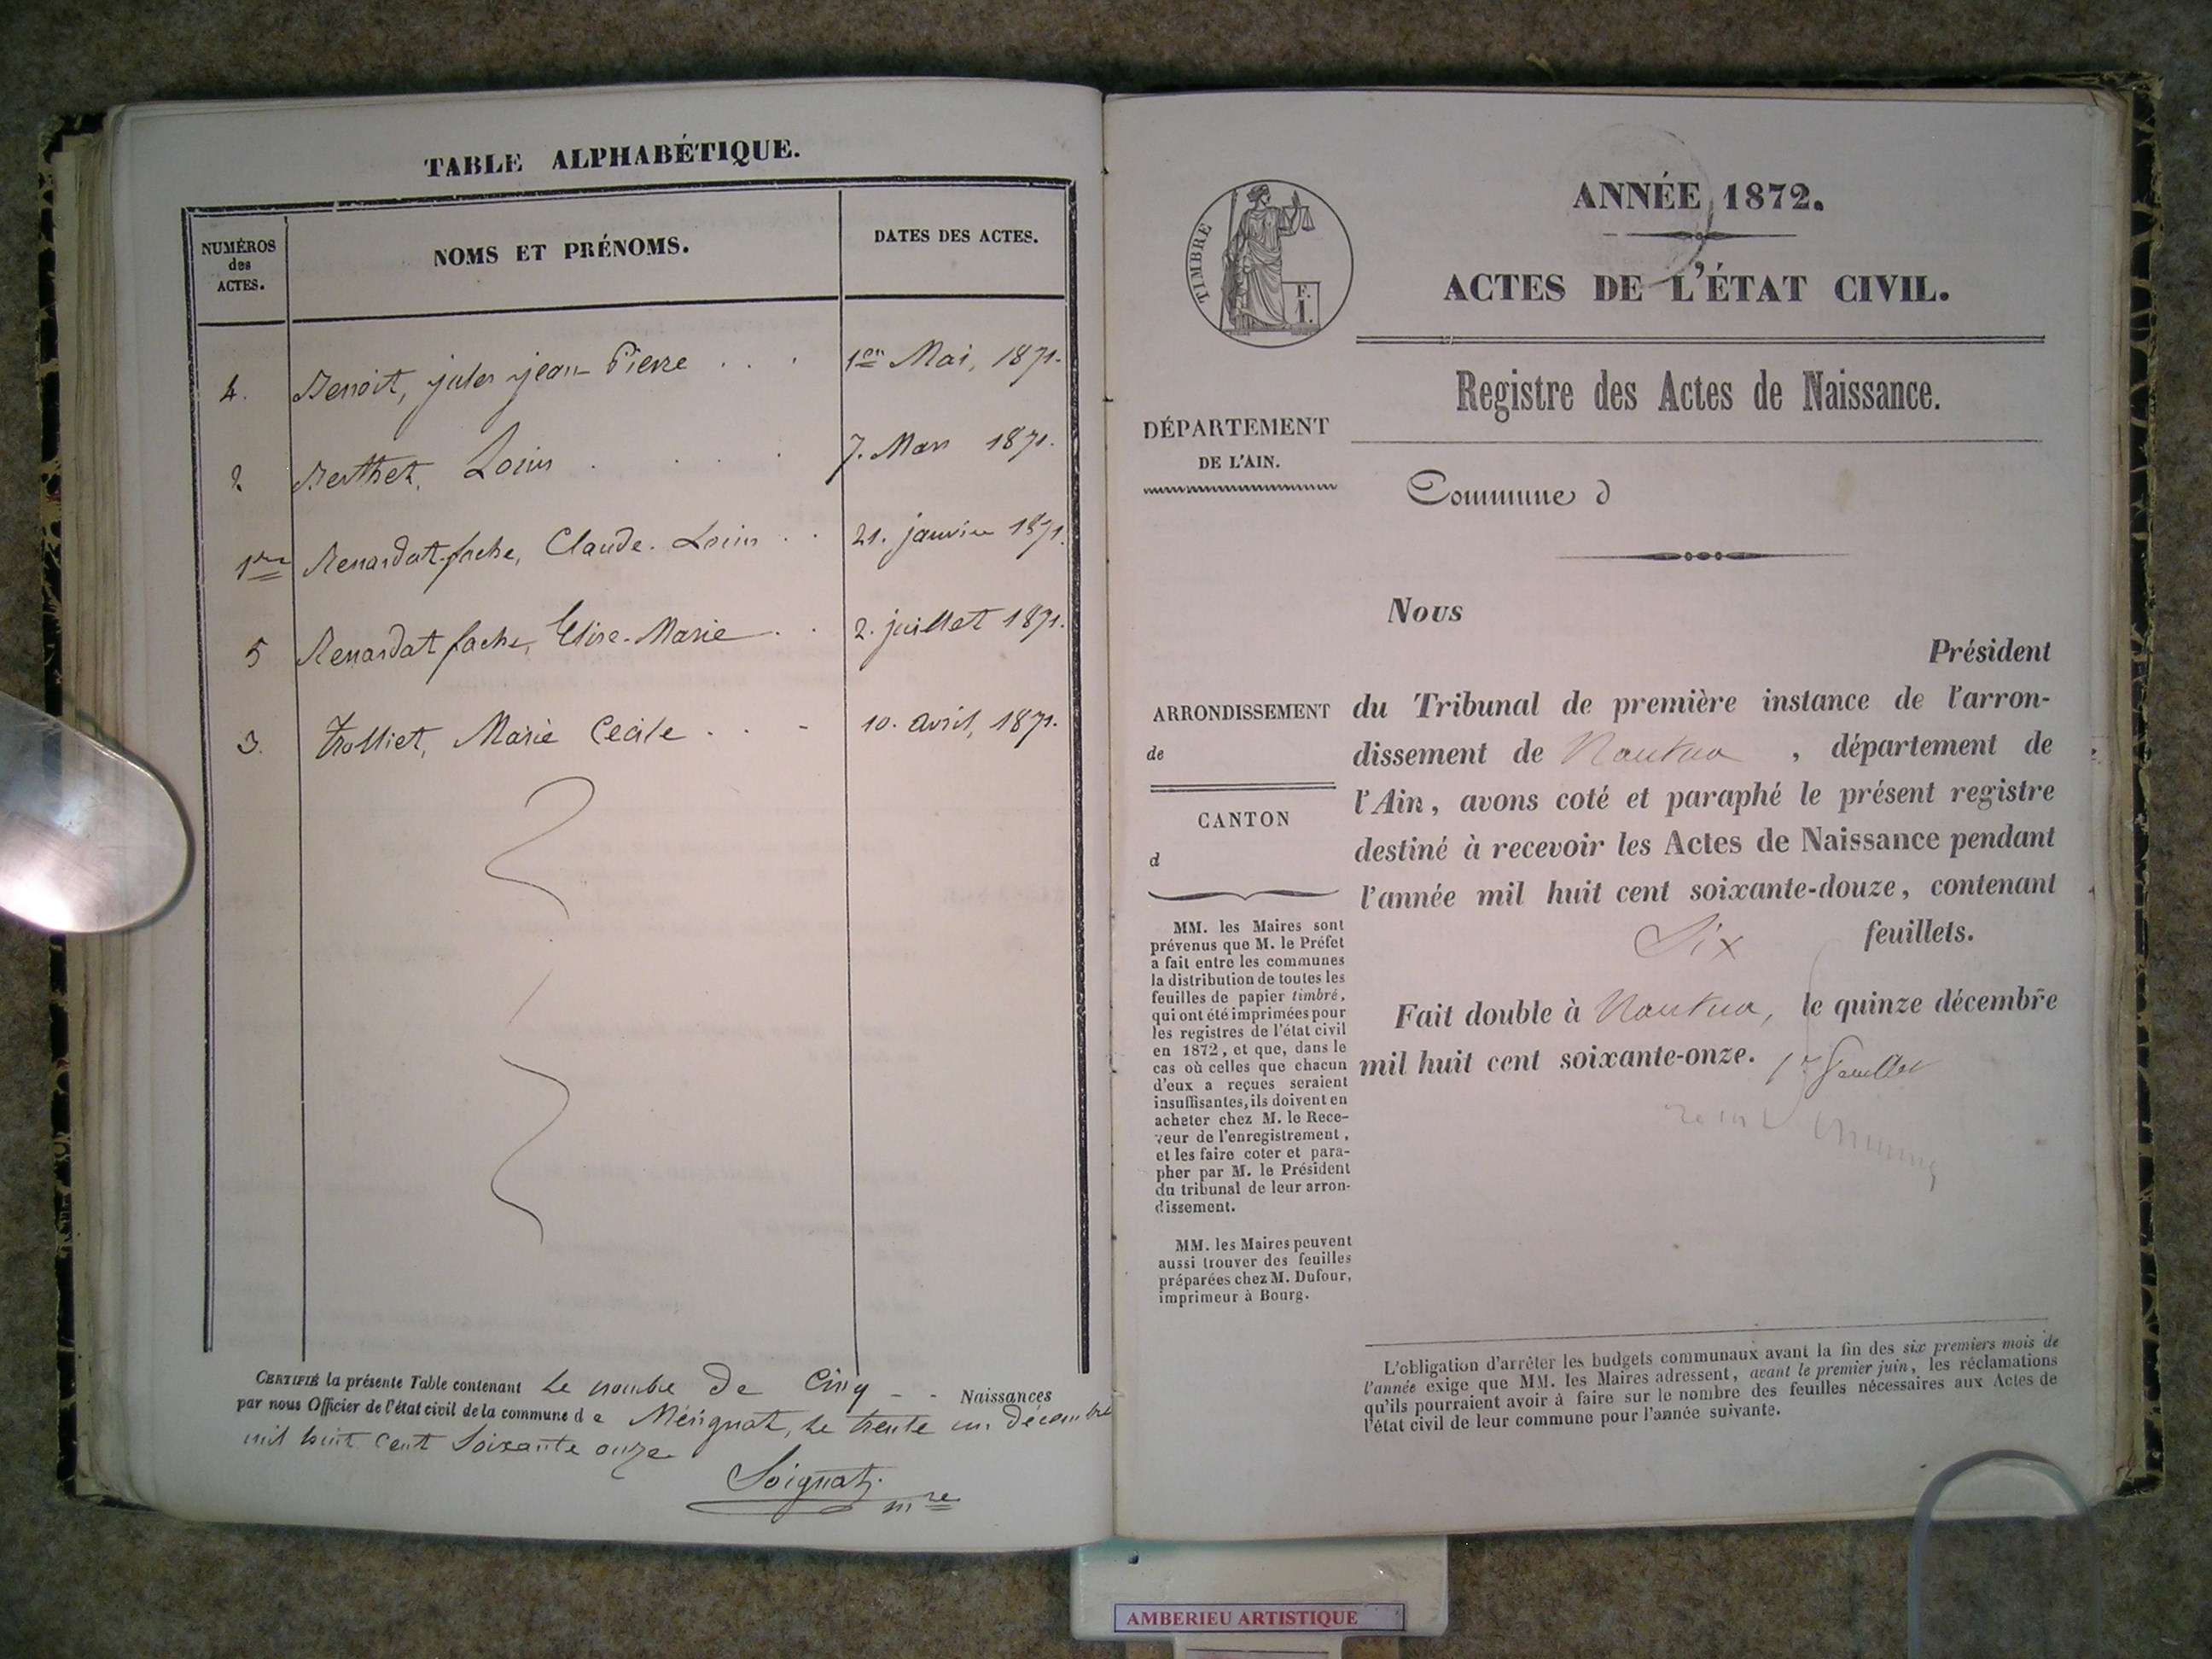 TABLE ALPHABÉTIQUE.
NUMÉROS des ACTES.
NOMS ET PRÉNOMS.
DATES DES ACTES.
4. Benoit, jules jean-Pierre . . . 1er Mai, 1871.
2 Berthet, Louis . . . . 7. Mars 1871.
1er Renardat-fache, Claude-Louis . . 21. janvier 1871.
5 Renardat fache, Elise-Marie . . 2. juillet 1871.
3. Trolliet, Marie Cecile . . - 10. avril, 1871.
CERTIFIÉ la présente Table contenant le nombre de Cinq - - Naissances
par nous Officier de l'état civil de la commune de Mérignat, le trente un Décembre
mil huit cent soixante onze
Soignat.
mre
TIMBRE
1 F.
ANNÉE 1872.
ACTES DE L'ÉTAT CIVIL.
Registre des Actes de Naissance.
DÉPARTEMENT
DE L'AIN.
Commune d
Nous
Président
ARRONDISSEMENT
de
CANTON
d
du Tribunal de première instance de l'arron-
dissement de Nantua , département de
l'Ain, avons coté et paraphé le présent registre
destiné à recevoir les Actes de Naissance pendant
l'année mil huit cent soixante-douze, contenant
Six feuillets.
Fait double à Nantua, le quinze décembre
mil huit cent soixante-onze. 1er feuillet
MM. les Maires sont
prévenus que M. le Préfet
a fait entre les communes
la distribution de toutes les
feuilles de papier timbré,
qui ont été imprimées pour
les registres de l'état civil
en 1872, et que, dans le
cas où celles que chacun
d'eux a reçues seraient
insuffisantes, ils doivent en
acheter chez M. le Rece-
veur de l'enregistrement,
et les faire coter et para-
pher par M. le Président
du tribunal de leur arron-
dissement.
MM. les Maires peuvent
aussi trouver des feuilles
préparées chez M. Dufour,
imprimeur à Bourg.
L'obligation d'arrêter les budgets communaux avant la fin des six premiers mois de
l'année exige que MM. les Maires adressent, avant le premier juin, les réclamations
qu'ils pourraient avoir à faire sur le nombre des feuilles nécessaires aux Actes de
l'état civil de leur commune pour l'année suivante.
AMBERIEU ARTISTIQUE